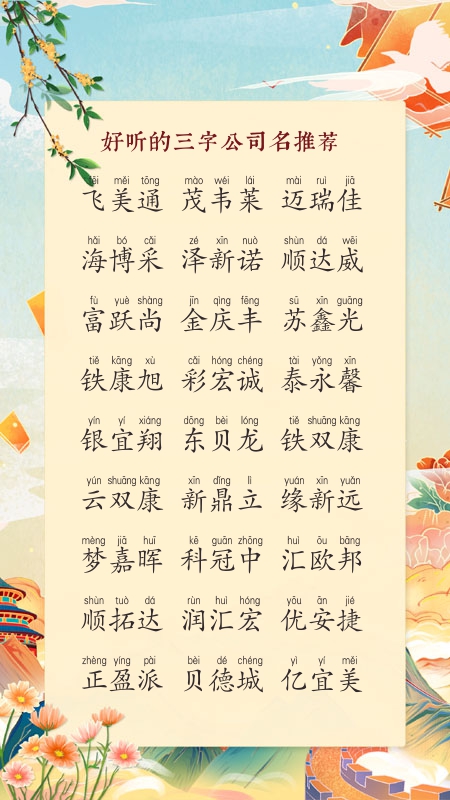 好听的三字公司名推荐
fēi měi tōng māo wéi lái mài ruì jiā
飞美通 茂韦莱 迈瑞佳
hǎi bó cǎi zé xīn nuò shùn dá wēi
海博采 泽新诺 顺达威
fù yuè shàng jīn qìng fēng sū xīn guāng
富跃尚 金庆丰 苏鑫光
tiě kāng xù cǎi hóng chéng tài yǒng xīn
铁康旭 彩宏诚 泰永馨
yín yí xiáng dōng bèi lóng tiě shuāng kāng
银宜翔 东贝龙 铁双康
yún shuāng kāng xīn dǐng lì yuán xīn yuǎn
云双康 新鼎立 缘新远
mèng jiā huī kē guān zhōng huì ōu bāng
梦嘉晖 科冠中 汇欧邦
shùn tuò dá rùn huì hóng yōu ān jié
顺拓达 润汇宏 优安捷
zhèng yíng pài bèi dé chéng yì yí měi
正盈派 贝德城 亿宜美